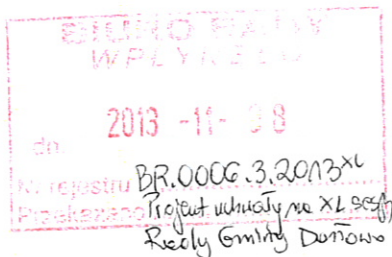 BIURO RADY
WPŁYNĘŁO
2013 -11- 
dn.
Nr rejestru BR.0006.3.2013 XL
Przekazano Projekt uchwały na XL sesję
Rady Gminy